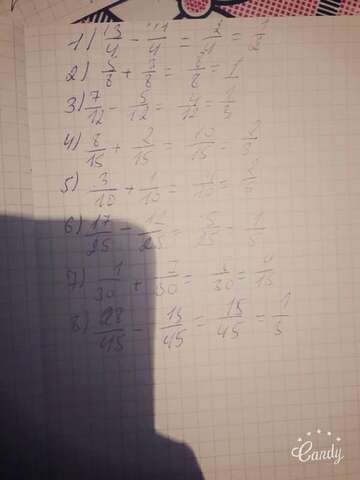 1) 13/4 - 11/4 = 2/4 = 1/2
2) 5/8 + 3/8 = 8/8 = 1
3) 7/12 - 5/12 = 4/12 = 1/3
4) 8/15 + 2/15 = 10/15 = 2/3
5) 3/10 + 1/10 = 4/10 = 2/5
6) 17/25 - 12/25 = 5/25 = 1/5
7) 1/30 + 7/30 = 8/30 = 4/15
8) 28/45 - 13/45 = 15/45 = 1/3
Candy